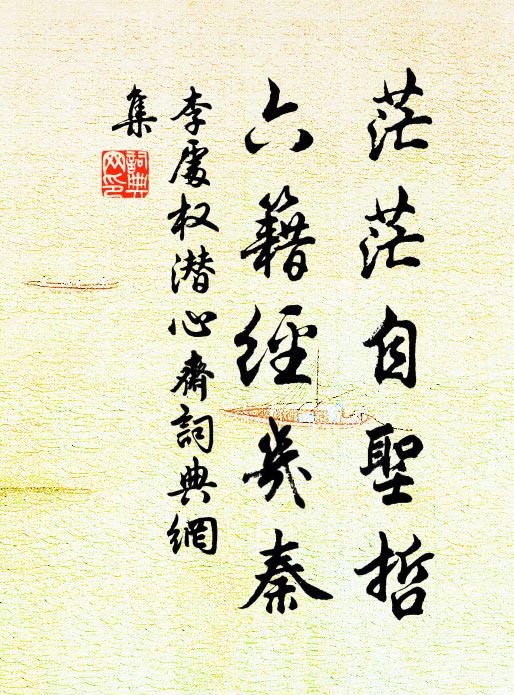 茫茫自聖哲
六籍經幾秦
李處权潜心齋詞典網
集
詞典网印